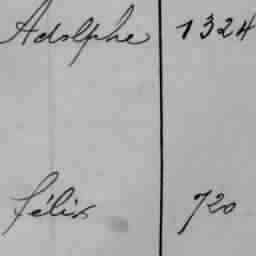 Adolphe 1324
Félix 720